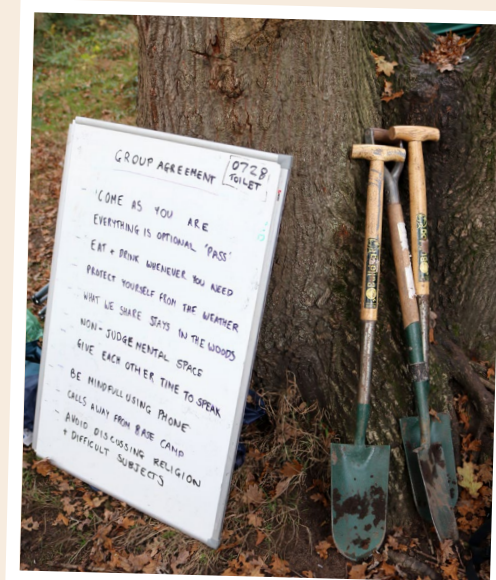 GROUP AGREEMENT
0728
TOILET
- 'COME AS YOU ARE
EVERYTHING IS OPTIONAL 'PASS'
- EAT + DRINK WHENEVER YOU NEED
- PROTECT YOURSELF FROM THE WEATHER
- WHAT WE SHARE STAYS IN THE WOODS
- NON-JUDGEMENTAL SPACE
- GIVE EACH OTHER TIME TO SPEAK
- BE MINDFULL USING PHONE
CALLS AWAY FROM BASE CAMP
- AVOID DISCUSSING RELIGION
+ DIFFICULT SUBJECTS